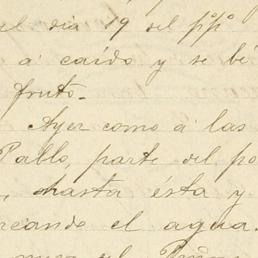 el dia 19 del p.º p.º
á caído y se bé
fruto.-
Ayer como á las
Pablo, parte del po
, hasta ésta y
rcando el agua.